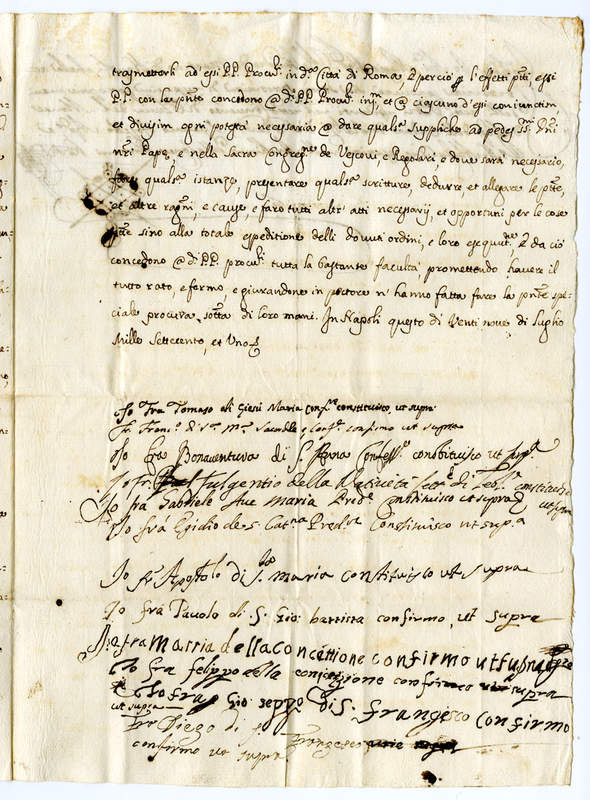 trasmetterli ad essi PP. Proc.ri in d.a Città di Roma, e perciò p l'effetti p.ti, essi
P.P. con la p.nte concedono @ d.i P.P. Proc.ri in et @ ciascuno d'essi coniunctim
et divisim ogni potestà necessaria @ dare quals.a Supplicho ad pedes SS.mi D.ni
n.ri Pape, e nella Sacra Congreg.ne de Vescovi, e Regolari, e dove sarà necessario,
fare quals.a istanze, presentare quals.a scritture, dedurre, et allegare le p.tte,
et altre ragni, e cause, e faro tutti altr' atti necessarij, et opportuni per le cose
p.tte sino alla totale espeditione delli dovuti ordini, e loro esequut.ne, e da ciò
concedono @ d.i P.P. proc.ri tutta la bastante facultà, promettendo havere il
tutto rato, e fermo, e giurandone in pectore n' hanno fatta fare la p.nte spe-
ciale procura, sott.a di loro mani. In Napoli questo dì Venti nove di Luglio
Mille Settecento, et Uno
Io Fra Tomaso di Giesù Maria Conf.re constituisco, ut supra
Fr. Fran.co di Sacerdote e Conf.re confirmo ut supra
Io fra Bonaventura di S. Anna Confess.re constituisco ut supra
Io fr. Fulgentio della Natività constituisco
ut supra
Io fra Gabriele Ave Maria Pred.e Constituisco ut supra
Io frà Egidio de S. Cat.na Pred.re Constituisco ut sup.a
Io fr Apostolo di S. maria constituisco ut supra
Io frà Pauolo di S. Gio: battista confirmo, ut supra
Io fra Mattia della Concettione confirmo ut supra
Io fra felippo della concezzione confirmo ut supra
Io fra Gioseppe di S. Francesco confirmo
ut supra
fra Diego di S. Francesco
confirmo ut supra